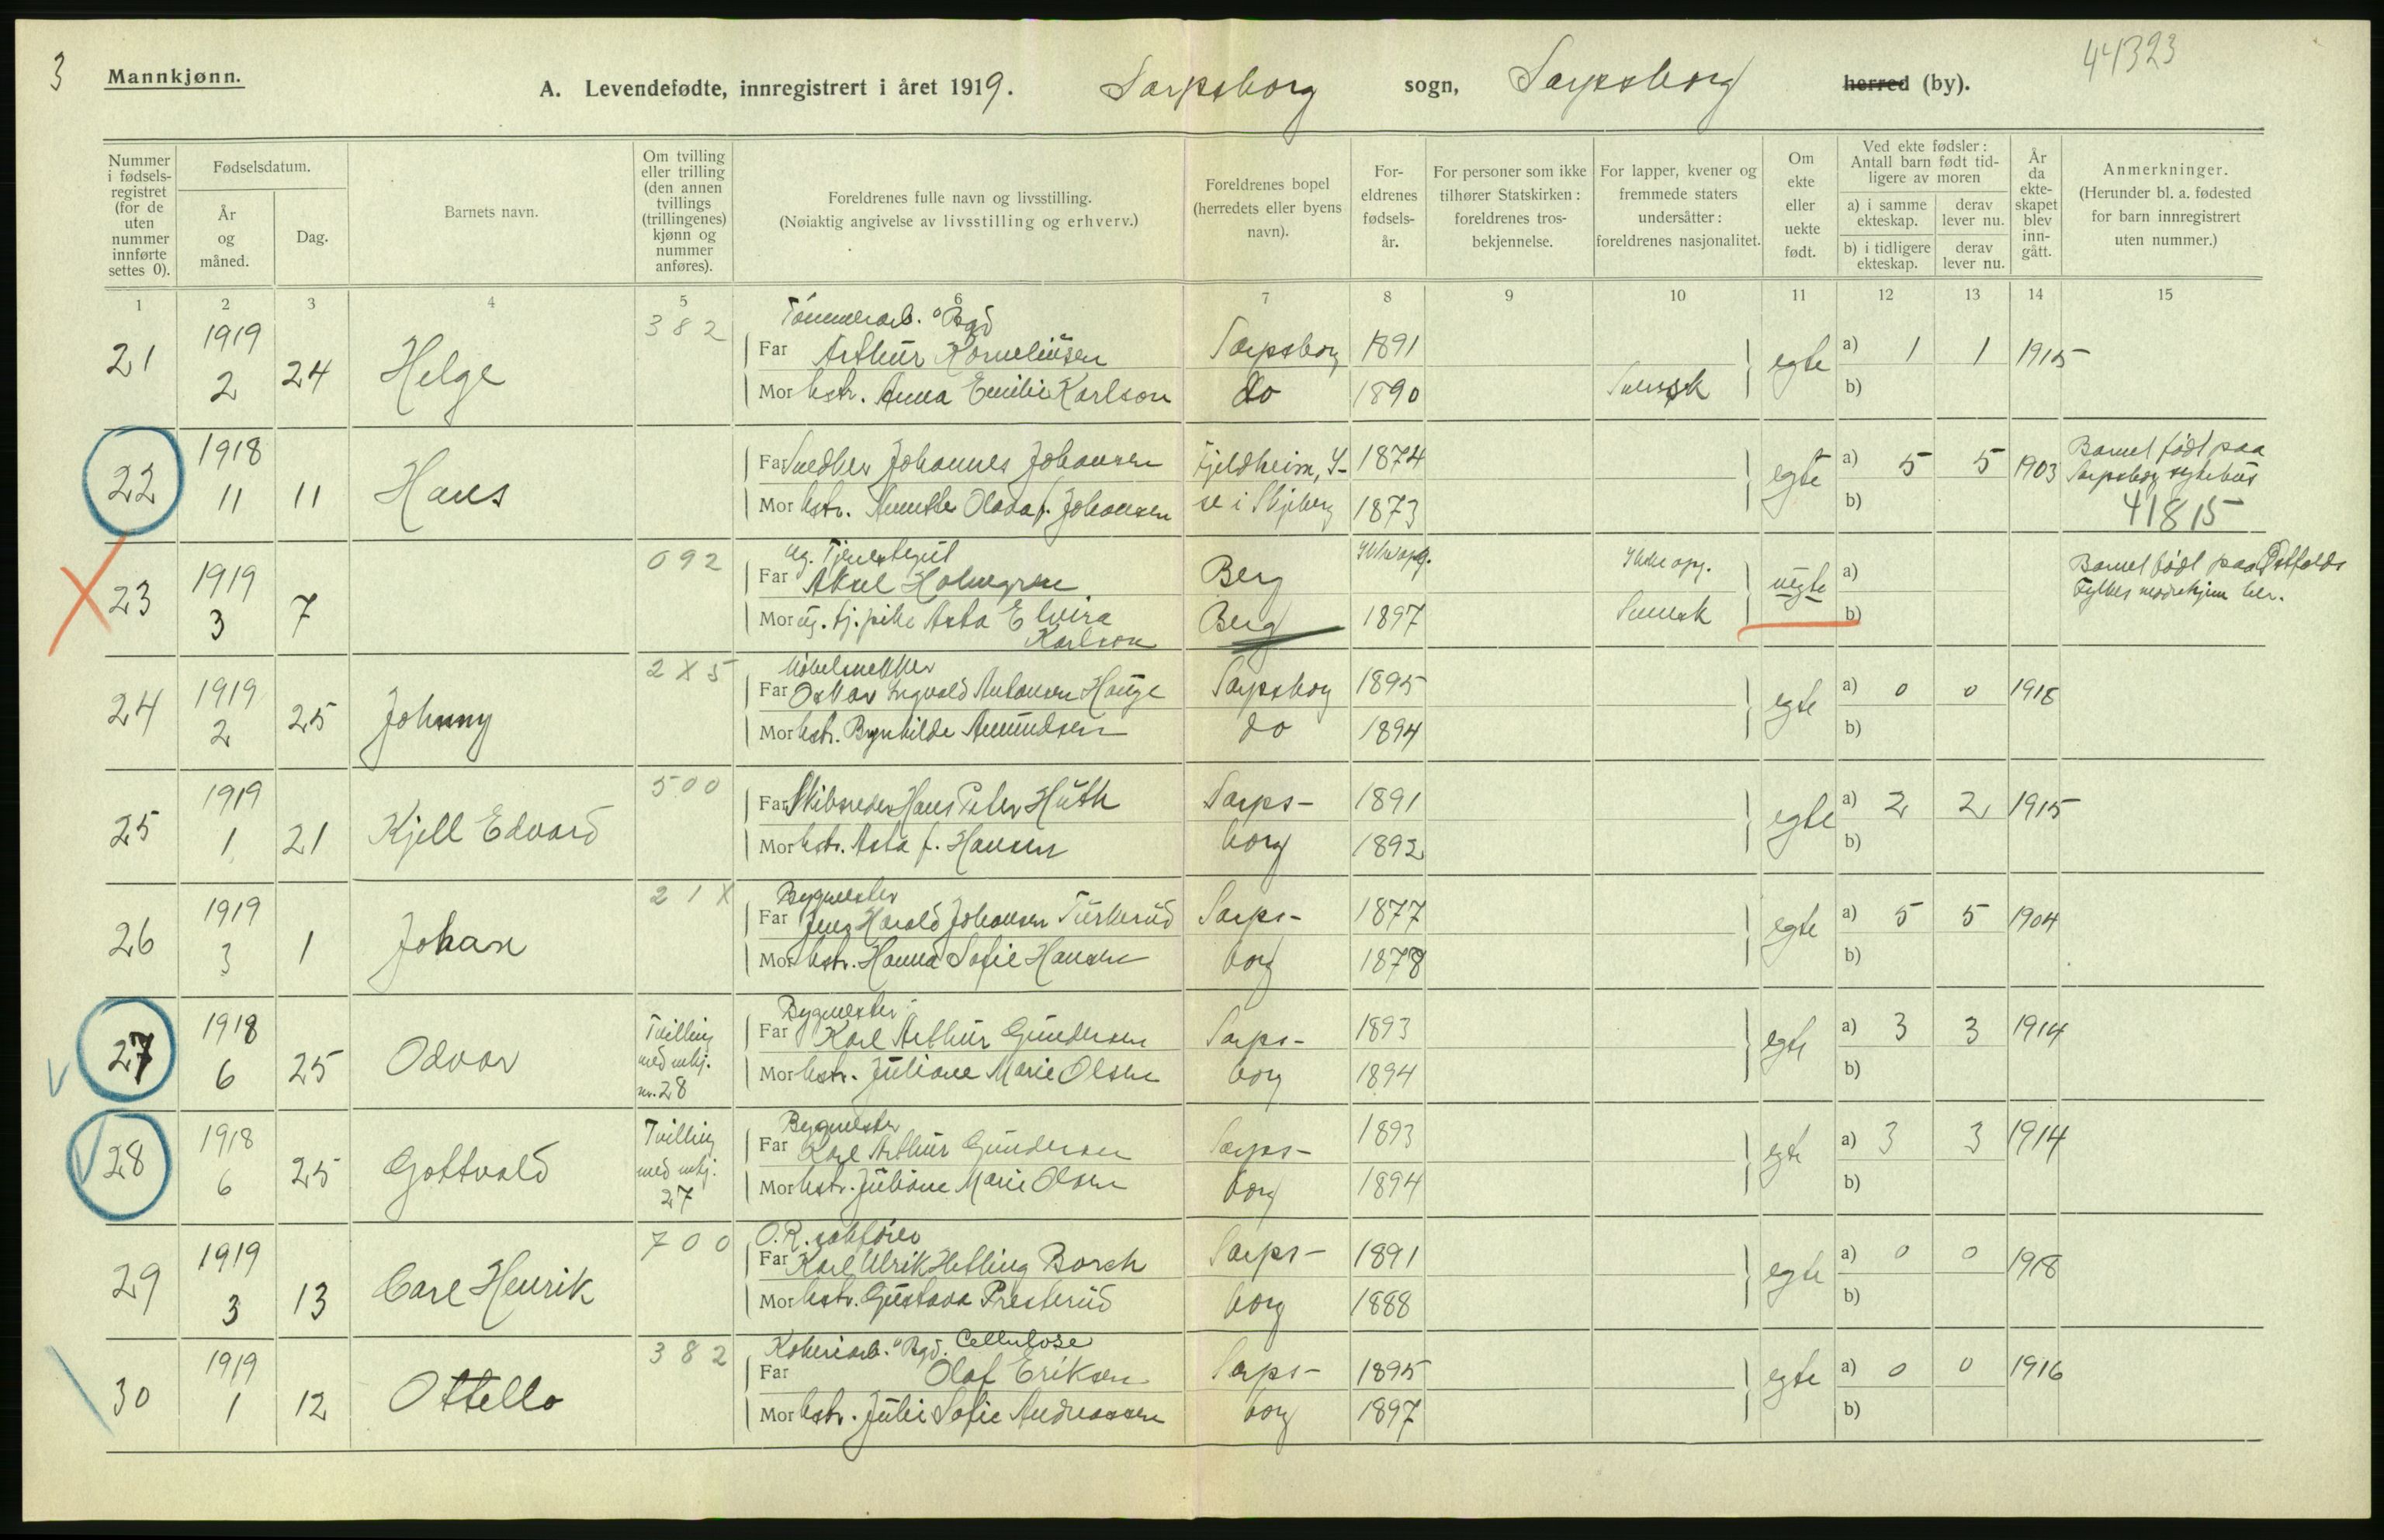 3
44323
Mannkjønn.
A. Levendefødte, innregistrert i året 1919. Sarpsborg sogn, Sarpsborg herred (by).
Nummer i fødselsregistret (for de uten nummer innførte settes 0).
Fødselsdatum.
År og måned.
Dag.
Barnets navn.
Om tvilling eller trilling (den annen tvillings (trillingenes) kjønn og nummer anføres).
Foreldrenes fulle navn og livsstilling.
(Nøiaktig angivelse av livsstilling og erhverv.)
Foreldrenes bopel (herredets eller byens navn).
Foreldrenes fødselsår.
For personer som ikke tilhører Statskirken: foreldrenes trosbekjennelse.
For lapper, kvener og fremmede staters undersåtter: foreldrenes nasjonalitet.
Om ekte eller uekte født.
Ved ekte fødsler: Antall barn født tidligere av moren
a) i samme ekteskap. derav lever nu.
b) i tidligere ekteskap. derav lever nu.
År da ekteskapet blev inngått.
Anmerkninger.
(Herunder bl. a. fødested for barn innregistrert uten nummer.)
1 2 3 4 5 6 7 8 9 10 11 12 13 14 15
382 Tømmerarb. Bgd
21 1919 2 24 Helge Far Arthur Korneliusen Sarpsborg 1891 egte a) 1 1 1915
Mor hstr. Anna Emilie Karlson do 1890 Svensk b)
22 1918 11 11 Hans Far Snedker Johannes Johansen Fjeldheim, Y- 1874 egte a) 5 5 1903 Barnet født paa Sarpsborg sykehus
Mor hstr. Annette Olava f. Johansen se i Skjeberg 1873 b) 41815
092 ug. Tjenestegut
23 1919 3 7 Far Aksel Holmgren Berg Ikke opg. Ikke opg. uegte a) Barnet født paa Østfolds
Mor ug. tj.pike Asta Elvira Karlson Berg 1897 Svensk b) Fylkes mødrehjem her.
2X5 Møbelsnekker
24 1919 2 25 Johnny Far Oskar Ingvald Antonsen Hauge Sarpsborg 1895 egte a) 0 0 1918
Mor hstr. Brynhilde Amundsen do 1894 b)
25 1919 1 21 Kjell Edvard 500 Far Skibsreder Hans Peter Huth Sarps- 1891 egte a) 2 2 1915
Mor hstr. Asta f. Hansen borg 1892 b)
21X Bygmester
26 1919 3 1 Johan Far Jens Harald Johansen Turkerud Sarps- 1877 egte a) 5 5 1904
Mor hstr. Hanna Sofie Hansen borg 1878 b)
Bygmester
27 1918 6 25 Odvar Tvilling med mkj. nr. 28 Far Karl Arthur Gundersen Sarps- 1893 egte a) 3 3 1914
Mor hstr. Juliane Marie Olsen borg 1894 b)
Bygmester
28 1918 6 25 Gottvald Tvilling med mkj. 27 Far Karl Arthur Gundersen Sarps- 1893 egte a) 3 3 1914
Mor hstr. Juliane Marie Olsen borg 1894 b)
700 O.R. sakfører
29 1919 3 13 Carl Henrik Far Karl Ulrik Hetling Borch Sarps- 1891 egte a) 0 0 1918
Mor hstr. Gustava Presterud borg 1888 b)
382 Kokeriarb. Bgd. Cellulose
30 1919 1 12 Ottello Far Olaf Eriksen Sarps- 1895 egte a) 0 0 1916
Mor hstr. Julie Sofie Andreassen borg 1897 b)